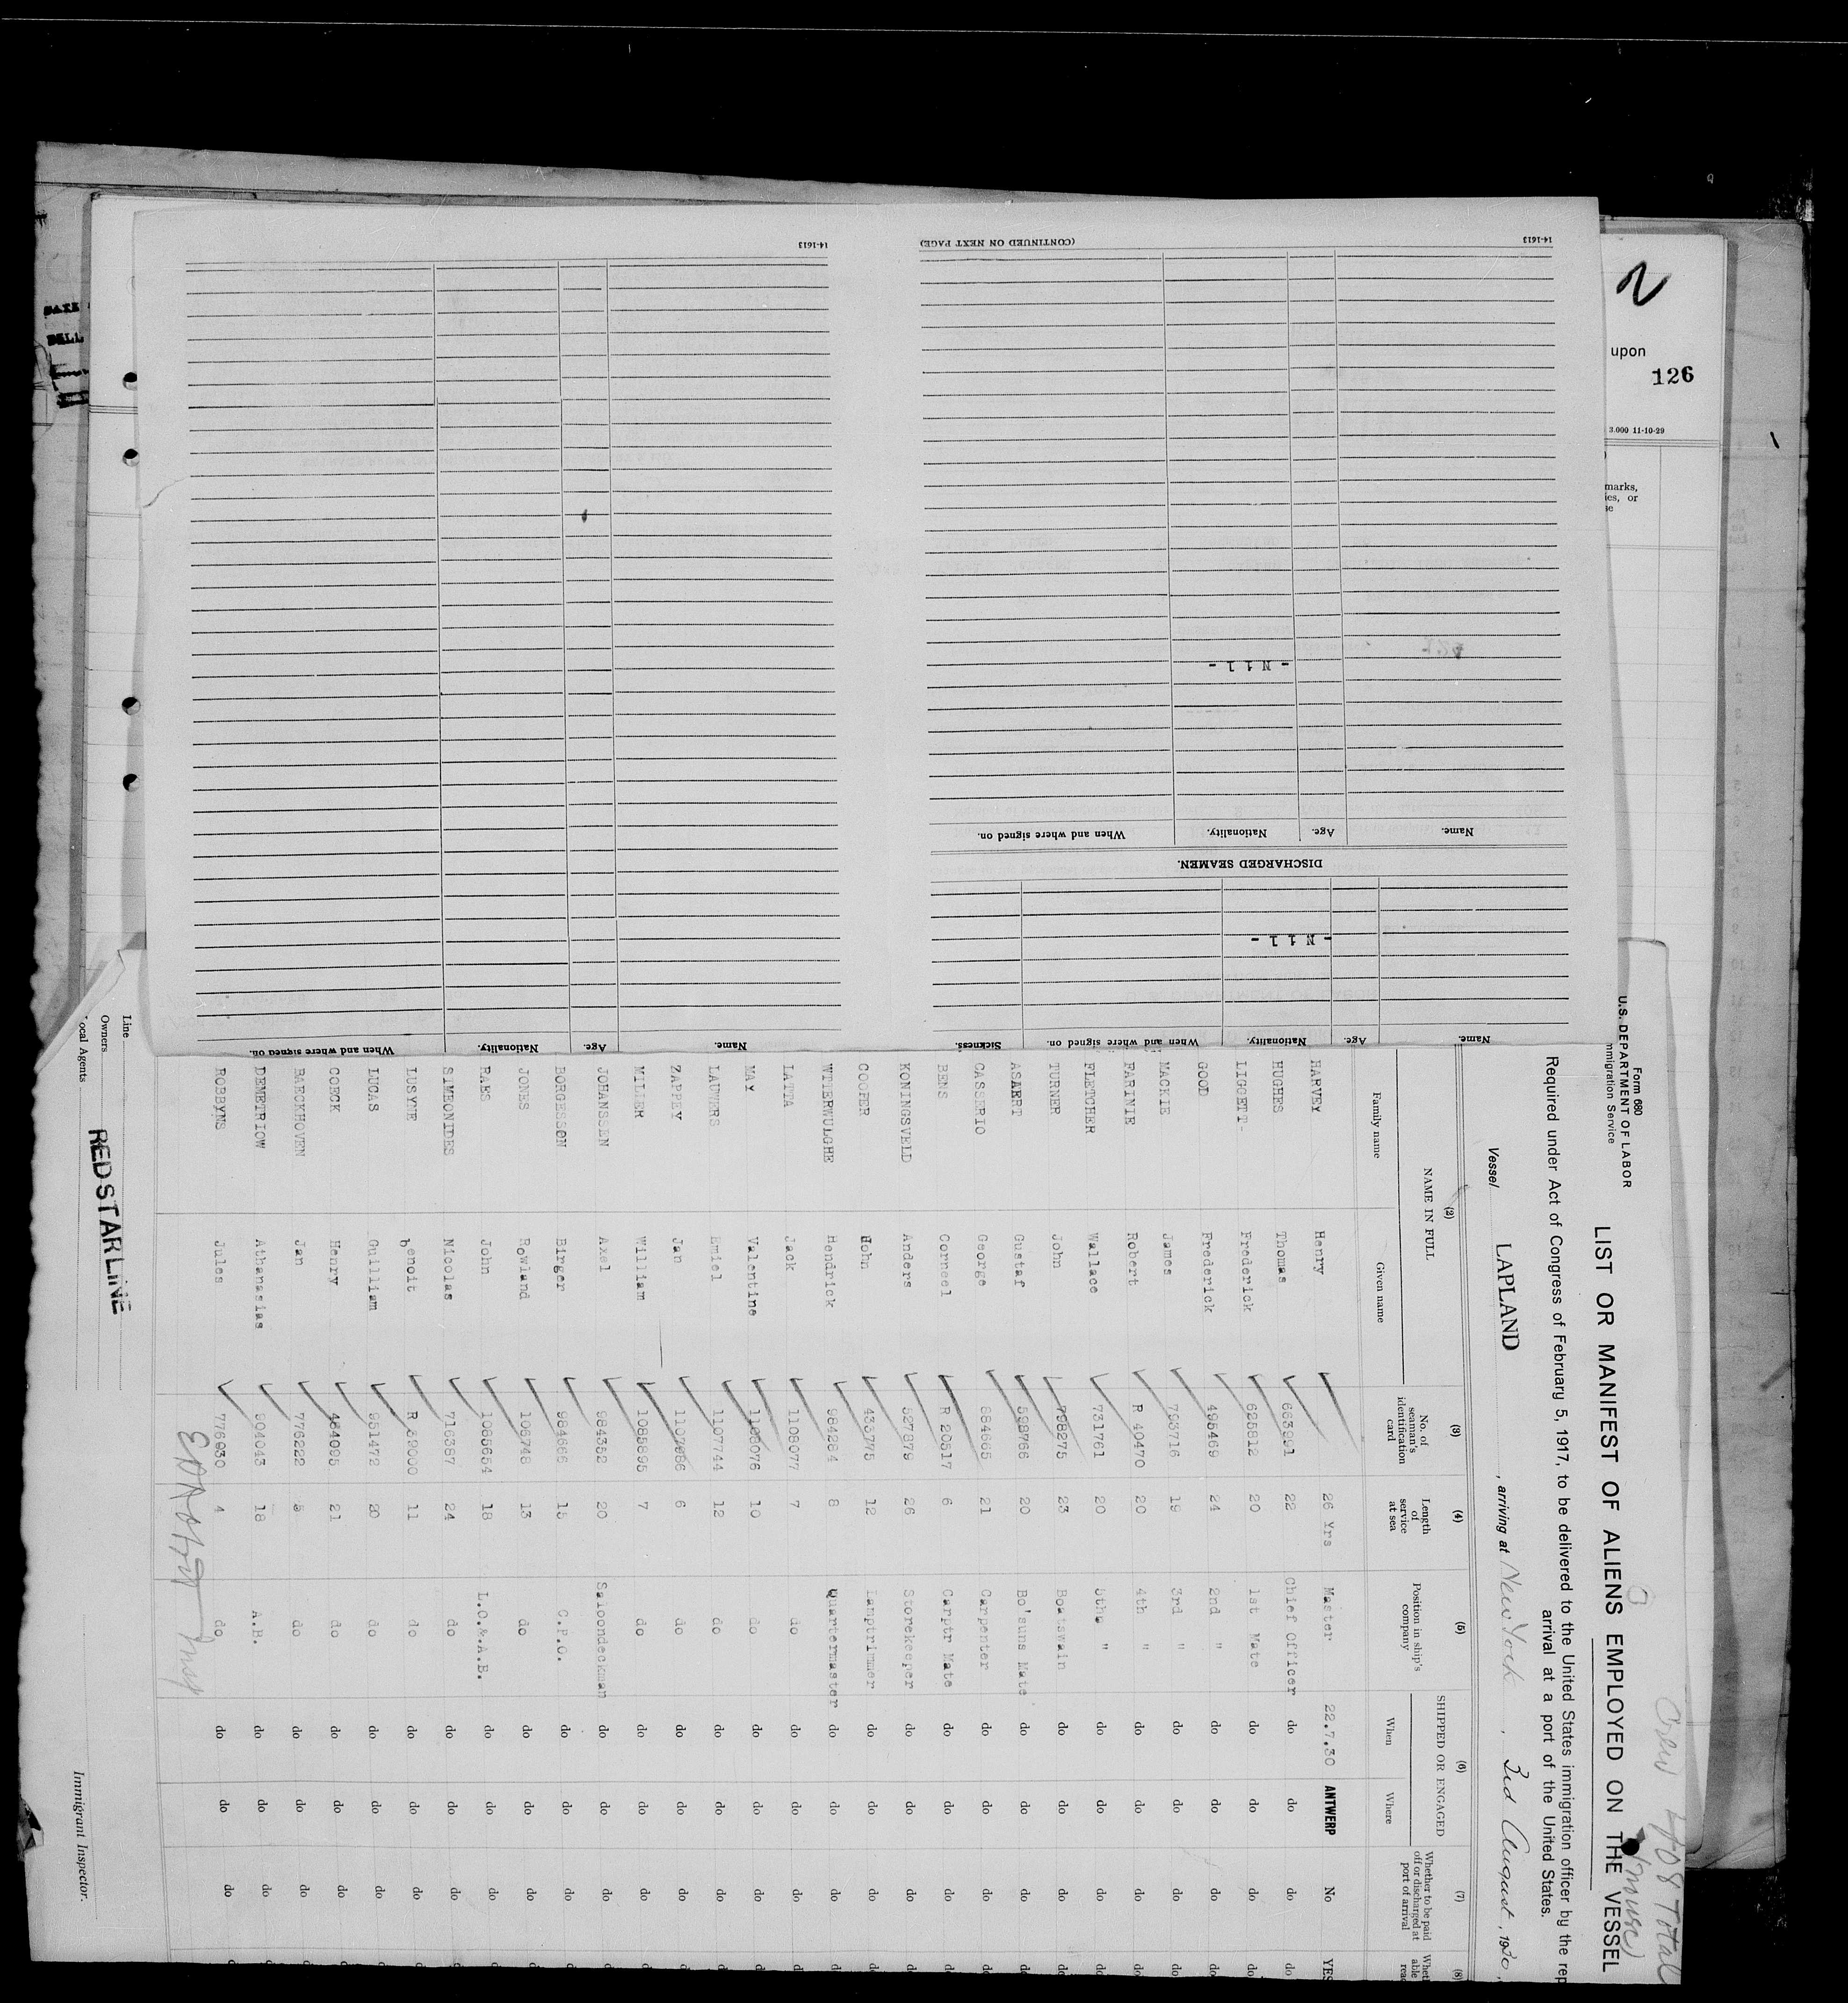 Form 680
U.S. DEPARTMENT OF LABOR
Immigration Service
LIST OR MANIFEST OF ALIENS EMPLOYED ON THE VESSEL
Crew 408 Total
Required under Act of Congress of February 5, 1917, to be delivered to the United States immigration officer by the rep
arrival at a port of the United States.
Vessel LAPLAND, arriving at New York, 3rd August, 1930,
(2) (3) (4) (5) (6) (7) (8)
NAME IN FULL
Family name Given name
No. of seaman's identification card
Length of service at sea
Position in ship's company
SHIPPED OR ENGAGED
When Where
Whether to be paid off or discharged at port of arrival
HARVEY Henry 26 Yrs Master 22.7.30 ANTWERP No YES
HUGHES Thomas 663991 22 Chief Officer do do do do
LIGGETT- Frederick 625812 20 1st Mate do do do do
GOOD Frederick 495469 24 2nd " do do do do
MACKIE James 793716 19 3rd " do do do do
FARINIE Robert R 40470 20 4th " do do do do
FLETCHER Wallace 731761 20 5th " do do do do
TURNER John 798275 23 Boatswain do do do do
ASAERT Gustaf 598766 20 Bo'suns Mate do do do do
CASSERIO George 684665 21 Carpenter do do do do
BENS Corneel R 20517 6 Carptr Mate do do do do
KONINGSVELD Anders 527379 26 Storekeeper do do do do
COOPER John 433775 12 Lamptrimmer do do do do
WITTERWULGHE Hendrick 984284 8 Quartermaster do do do do
LATTA Jack 1108077 7 do do do do do
MAY Valentine 1108076 10 do do do do
LAUWERS Emiel 1107744 12 do do do do
ZAPPEY Jan 1107986 6 do do do do
MILLER William 1085895 7 do do do do
JOHANSSEN Axel 984352 20 Saloondeckman do do do
BORGESSON Birger 984666 15 C.P.O. do do do
JONES Rowland 106748 13 do do do do
RAES John 1085654 18 L.O.&.A.B. do do do
SIMEONIDES Nicolas 716387 24 do do do do
LUSYNE Benoit R 59000 11 do do do do
LUCAS Guilliam 951472 20 do do do do
COECK Henry 464095 21 do do do do
BAECKHOVEN Jan 776222 5 do do do do
DEMETRIOW Athanasias 904043 18 A.B. do do do
ROBBYNS Jules 776930 4 do do do do
Line
Owners
ocal Agents
RED STAR LINE
Immigrant Inspector.
Name. Age. Nationality. When and where signed on. Sickness.
- N i l -
DISCHARGED SEAMEN.
Name. Age. Nationality. When and where signed on.
- N i l -
14-1613 (CONTINUED ON NEXT PAGE)
Name. Age. Nationality. When and where signed on.
14-1613
2
upon
126
3.000 11-10-29
marks,
ies, or